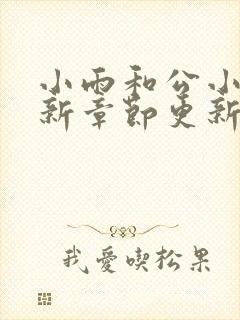 小雨和公小
新章節更新
我愛喫松果